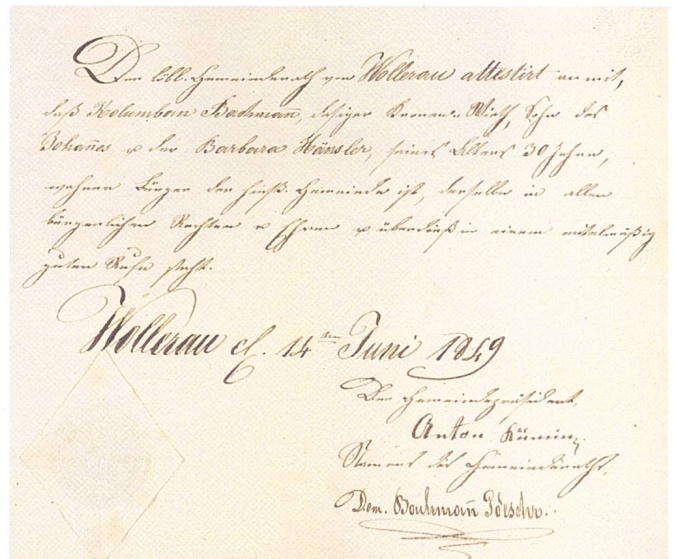 Der löbl. Gemeinderath von Wollerau attestirt anmit,
daß Kolumban Bachmañ, dasiger Kronen-Wirth, Sohn des
Johañes u der Barbara Hänsler, seines Alters 30 Jahre,
wahrer Bürger der hies. Gemeinde ist, derselbe in allen
bürgerlichen Rechten u Ehren u überdieß in einem mitelmäßig
guten Rufe steht.
Wollerau d. 14ten Juni 1849
Der Gemeindepräsident
Anton Kümin
Namens des Gemeinderaths,
Dom. Bachmañ